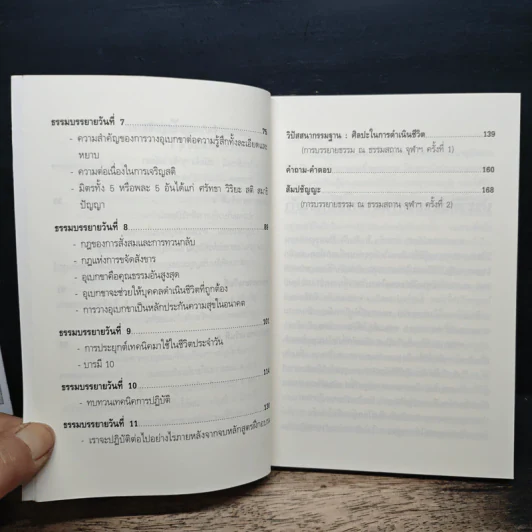 ธรรมบรรยายวันที่ 7
- ความสำคัญของการวางอุเบกขาต่อความรู้สึกทั้งละเอียดและ
หยาบ
- ความต่อเนื่องในการเจริญสติ
- มิตรทั้ง 5 หรือพละ 5 อันได้แก่ ศรัทธา วิริยะ สติ สมาธิ
ปัญญา
ธรรมบรรยายวันที่ 8
- กฎของการสั่งสมและการทวนกลับ
- กฎแห่งการขจัดสังขาร
- อุเบกขาคือคุณธรรมอันสูงสุด
- อุเบกขาจะช่วยให้บุคคลดำเนินชีวิตที่ถูกต้อง
- การวางอุเบกขาเป็นหลักประกันความสุขในอนาคต
ธรรมบรรยายวันที่ 9 101
- การประยุกต์เทคนิคมาใช้ในชีวิตประจำวัน
- บารมี 10
ธรรมบรรยายวันที่ 10
- ทบทวนเทคนิคการปฏิบัติ
ธรรมบรรยายวันที่ 11
- เราจะปฏิบัติต่อไปอย่างไรภายหลังจากจบหลักสูตรฝึกอบรม
วิปัสสนากรรมฐาน : ศิลปะในการดำเนินชีวิต 139
(การบรรยายธรรม ณ ธรรมสถาน จุฬาฯ ครั้งที่ 1)
คำถาม-คำตอบ 160
สัมปชัญญะ 168
(การบรรยายธรรม ณ ธรรมสถาน จุฬาฯ ครั้งที่ 2)